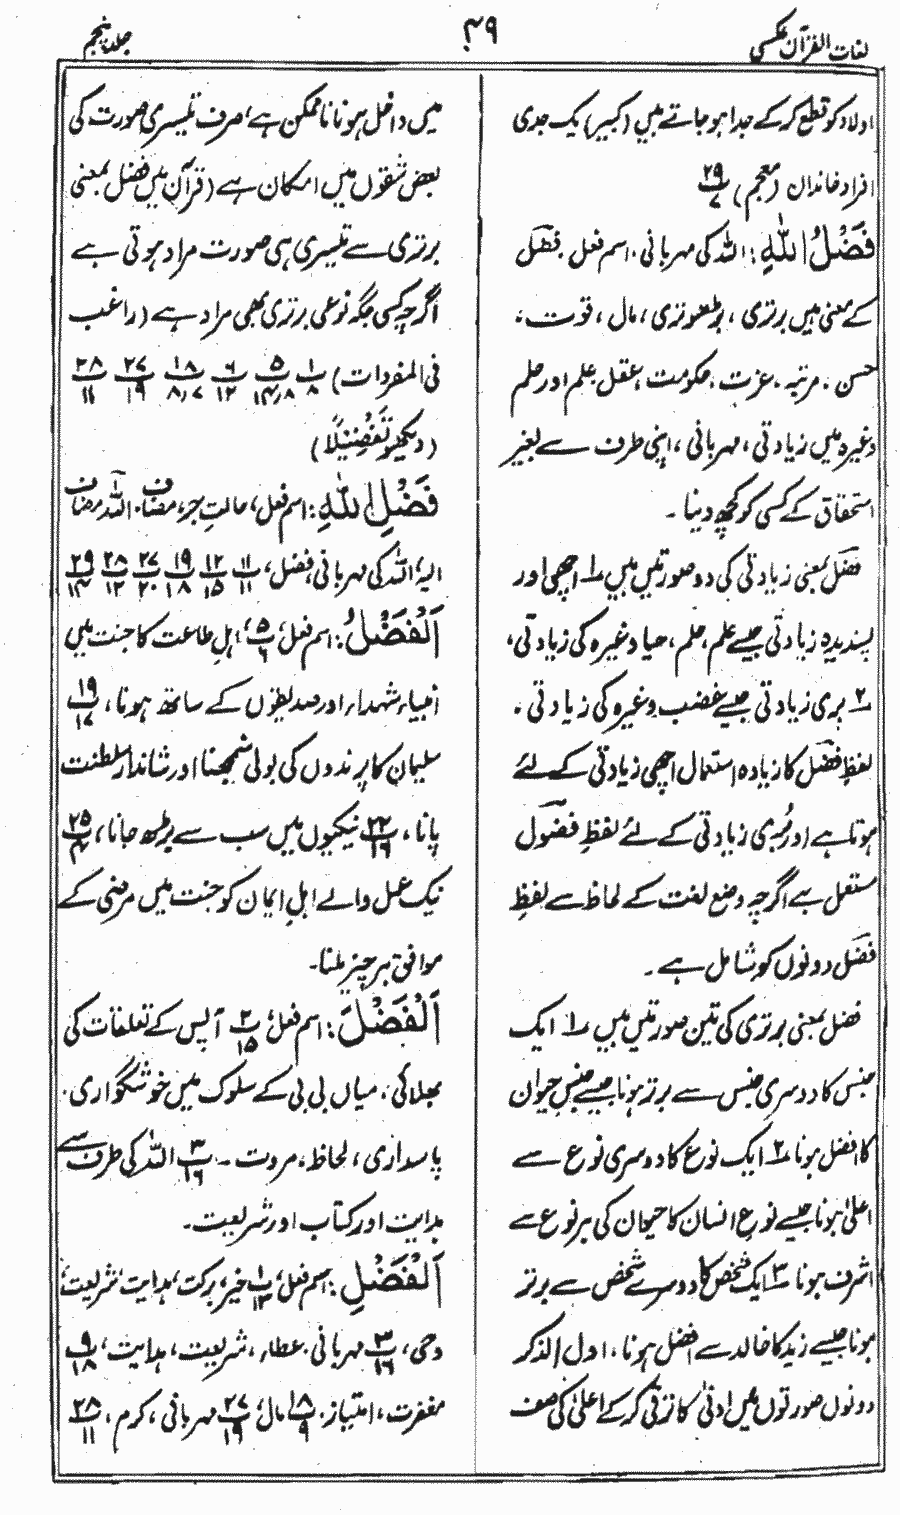 لغات القرآن عکسی
۴۹
جلد پنجم
اولاد کو قطع کر کے جدا ہو جاتے ہیں (کبیر) یک جدی
افراد خاندان (معجم) ۲۹/۷
فَضْلُ اللّٰهِ: اللہ کی مہربانی۔ اسم فعل فضل
کے معنی ہیں برتری، بڑھوتری، مال، قوت،
حسن، مرتبہ، عزت، حکومت، عقل، علم اور حلم
وغیرہ میں زیادتی، مہربانی، اپنی طرف سے بغیر
استحقاق کے کسی کو کچھ دینا۔
فضل بمعنی زیادتی کی دو صورتیں ہیں ۱ اچھی اور
پسندیدہ زیادتی جیسے علم، حلم، حیا وغیرہ کی زیادتی،
۲ بری زیادتی جیسے غضب وغیرہ کی زیادتی۔
لفظِ فضل کا زیادہ استعمال اچھی زیادتی کے لئے
ہوتا ہے اور بُری زیادتی کے لئے لفظِ فضول
مستعمل ہے اگرچہ وضع لغت کے لحاظ سے لفظِ
فضل دونوں کو شامل ہے۔
فضل بمعنی برتری کی تین صورتیں ہیں ۱ ایک
جنس کا دوسری جنس سے برتر ہونا جیسے جنسِ حیوان
کا افضل ہونا ۲ ایک نوع کا دوسری نوع سے
اعلیٰ ہونا جیسے نوعِ انسان کا حیوان کی ہر نوع سے
اشرف ہونا ۳ ایک شخص کا دوسرے شخص سے برتر
ہونا جیسے زید کا خالد سے افضل ہونا، اول الذکر
دونوں صورتوں میں ادنیٰ کا ترقی کر کے اعلیٰ کی صف
میں داخل ہونا ناممکن ہے، صرف تیسری صورت کی
بعض شقوں میں امکان ہے (قرآن میں فضل بمعنی
برتری سے تیسری ہی صورت مراد ہوتی ہے
اگرچہ کسی جگہ نوعی برتری بھی مراد ہے (راغب
فی المفردات) ۱/۸ ۵/۱۴٫۸ ۶/۱۲ ۱۸/۸٫۷ ۲۷/۱۹ ۲۸/۱۱
(دیکھو تَفْضِيْلًا)
فَضْلِ اللّٰهِ: اسم فعل، حالتِ جر، مضاف۔ اللہ مضاف
الیہ، اللہ کی مہربانی، فضل، ۱۱/۱۱ ۱۲/۱۵ ۱۹/۱۸ ۲۷/۲۰ ۲۸/۱۲ ۲۹/۱۴
اَلْفَضْلُ: اسم فعل، ۵/۶؛ اہلِ طاعت کا جنت میں
انبیاء، شہداء اور صدیقوں کے ساتھ ہونا، ۱۹/۱۷
سلیمان کا پرندوں کی بولی سمجھنا اور شاندار سلطنت
پانا، ۲۲/۱۶ نیکیوں میں سب سے بڑھ جانا، ۲۵/۴
نیک عمل والے اہلِ ایمان کو جنت میں مرضی کے
موافق ہر چیز ملنا۔
اَلْفَضْلَ: اسم فعل، ۲/۱۵ آپس کے تعلقات کی
بھلائی، میاں بی بی کے سلوک میں خوشگواری،
پاسداری، لحاظ، مروت۔ ۳/۱۶ اللہ کی طرف سے
ہدایت اور کتاب اور شریعت۔
اَلْفَضْلِ: اسم فعل، ۱/۱۳ خیر، برکت، ہدایت، شریعت،
وحی، ۳/۱۶ مہربانی، عطاء، شریعت، ہدایت، ۹/۱۸
مغفرت، امتیاز، ۱۸/۹ مال، ۲۷/۱۹ مہربانی، کرم، ۲۸/۱۱